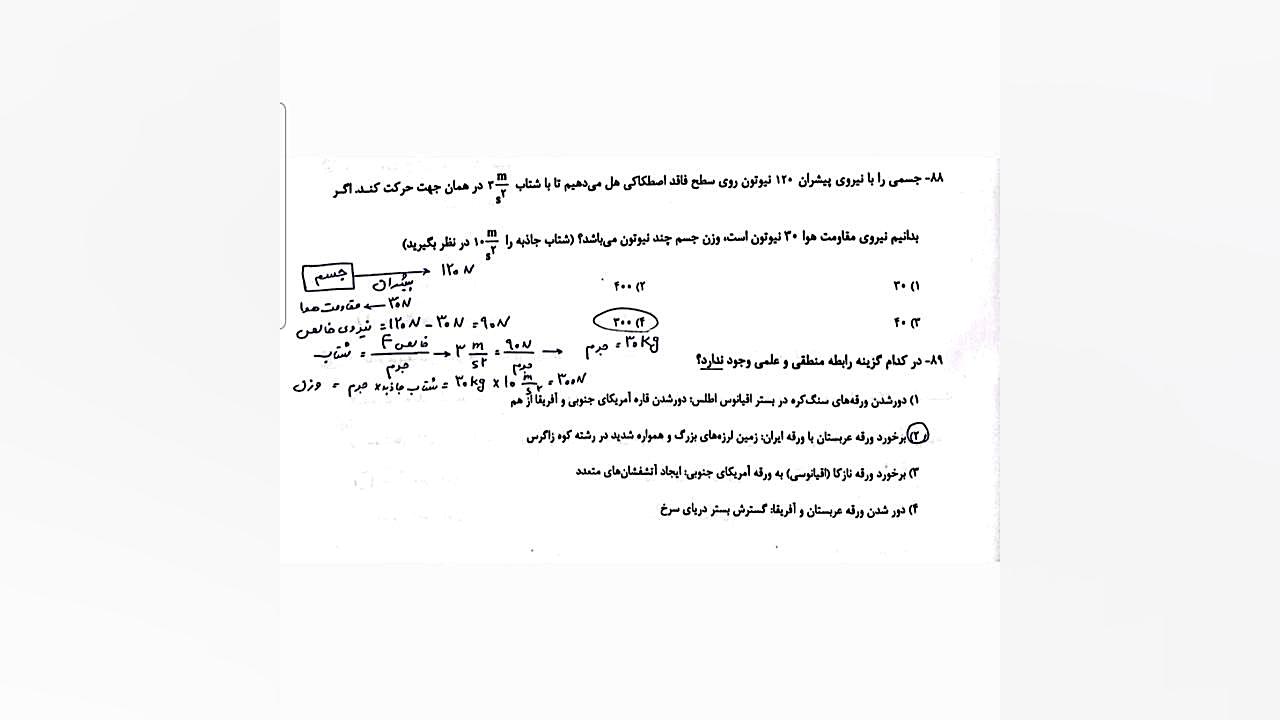 ۸۸- جسمی را با نیروی پیشران ۱۲۰ نیوتون روی سطح فاقد اصطکاکی هل می‌دهیم تا با شتاب ۳ m/s۲ در همان جهت حرکت کند. اگر
بدانیم نیروی مقاومت هوا ۳۰ نیوتون است، وزن جسم چند نیوتون می‌باشد؟ (شتاب جاذبه را ۱۰ m/s۲ در نظر بگیرید)
جسم → ۱۲۰ N
پیشران
۱) ۳۰
۲) ۴۰۰
۳۰N ← مقاومت هوا
۳) ۴۰
۴) ۳۰۰
نیروی خالص = ۱۲۰N - ۳۰N = ۹۰N
شتاب = F خالص / جرم → ۳ m/s۲ = ۹۰N / جرم → جرم = ۳۰kg
وزن = جرم × شتاب جاذبه = ۳۰kg × ۱۰ m/s۲ = ۳۰۰N
۸۹- در کدام گزینه رابطه منطقی و علمی وجود ندارد؟
۱) دورشدن ورقه‌های سنگ‌کره در بستر اقیانوس اطلس: دورشدن قاره آمریکای جنوبی و آفریقا از هم
۲) برخورد ورقه عربستان با ورقه ایران: زمین لرزه‌های بزرگ و همواره شدید در رشته کوه زاگرس
۳) برخورد ورقه نازکا (اقیانوسی) به ورقه آمریکای جنوبی: ایجاد آتشفشان‌های متعدد
۴) دور شدن ورقه عربستان و آفریقا: گسترش بستر دریای سرخ